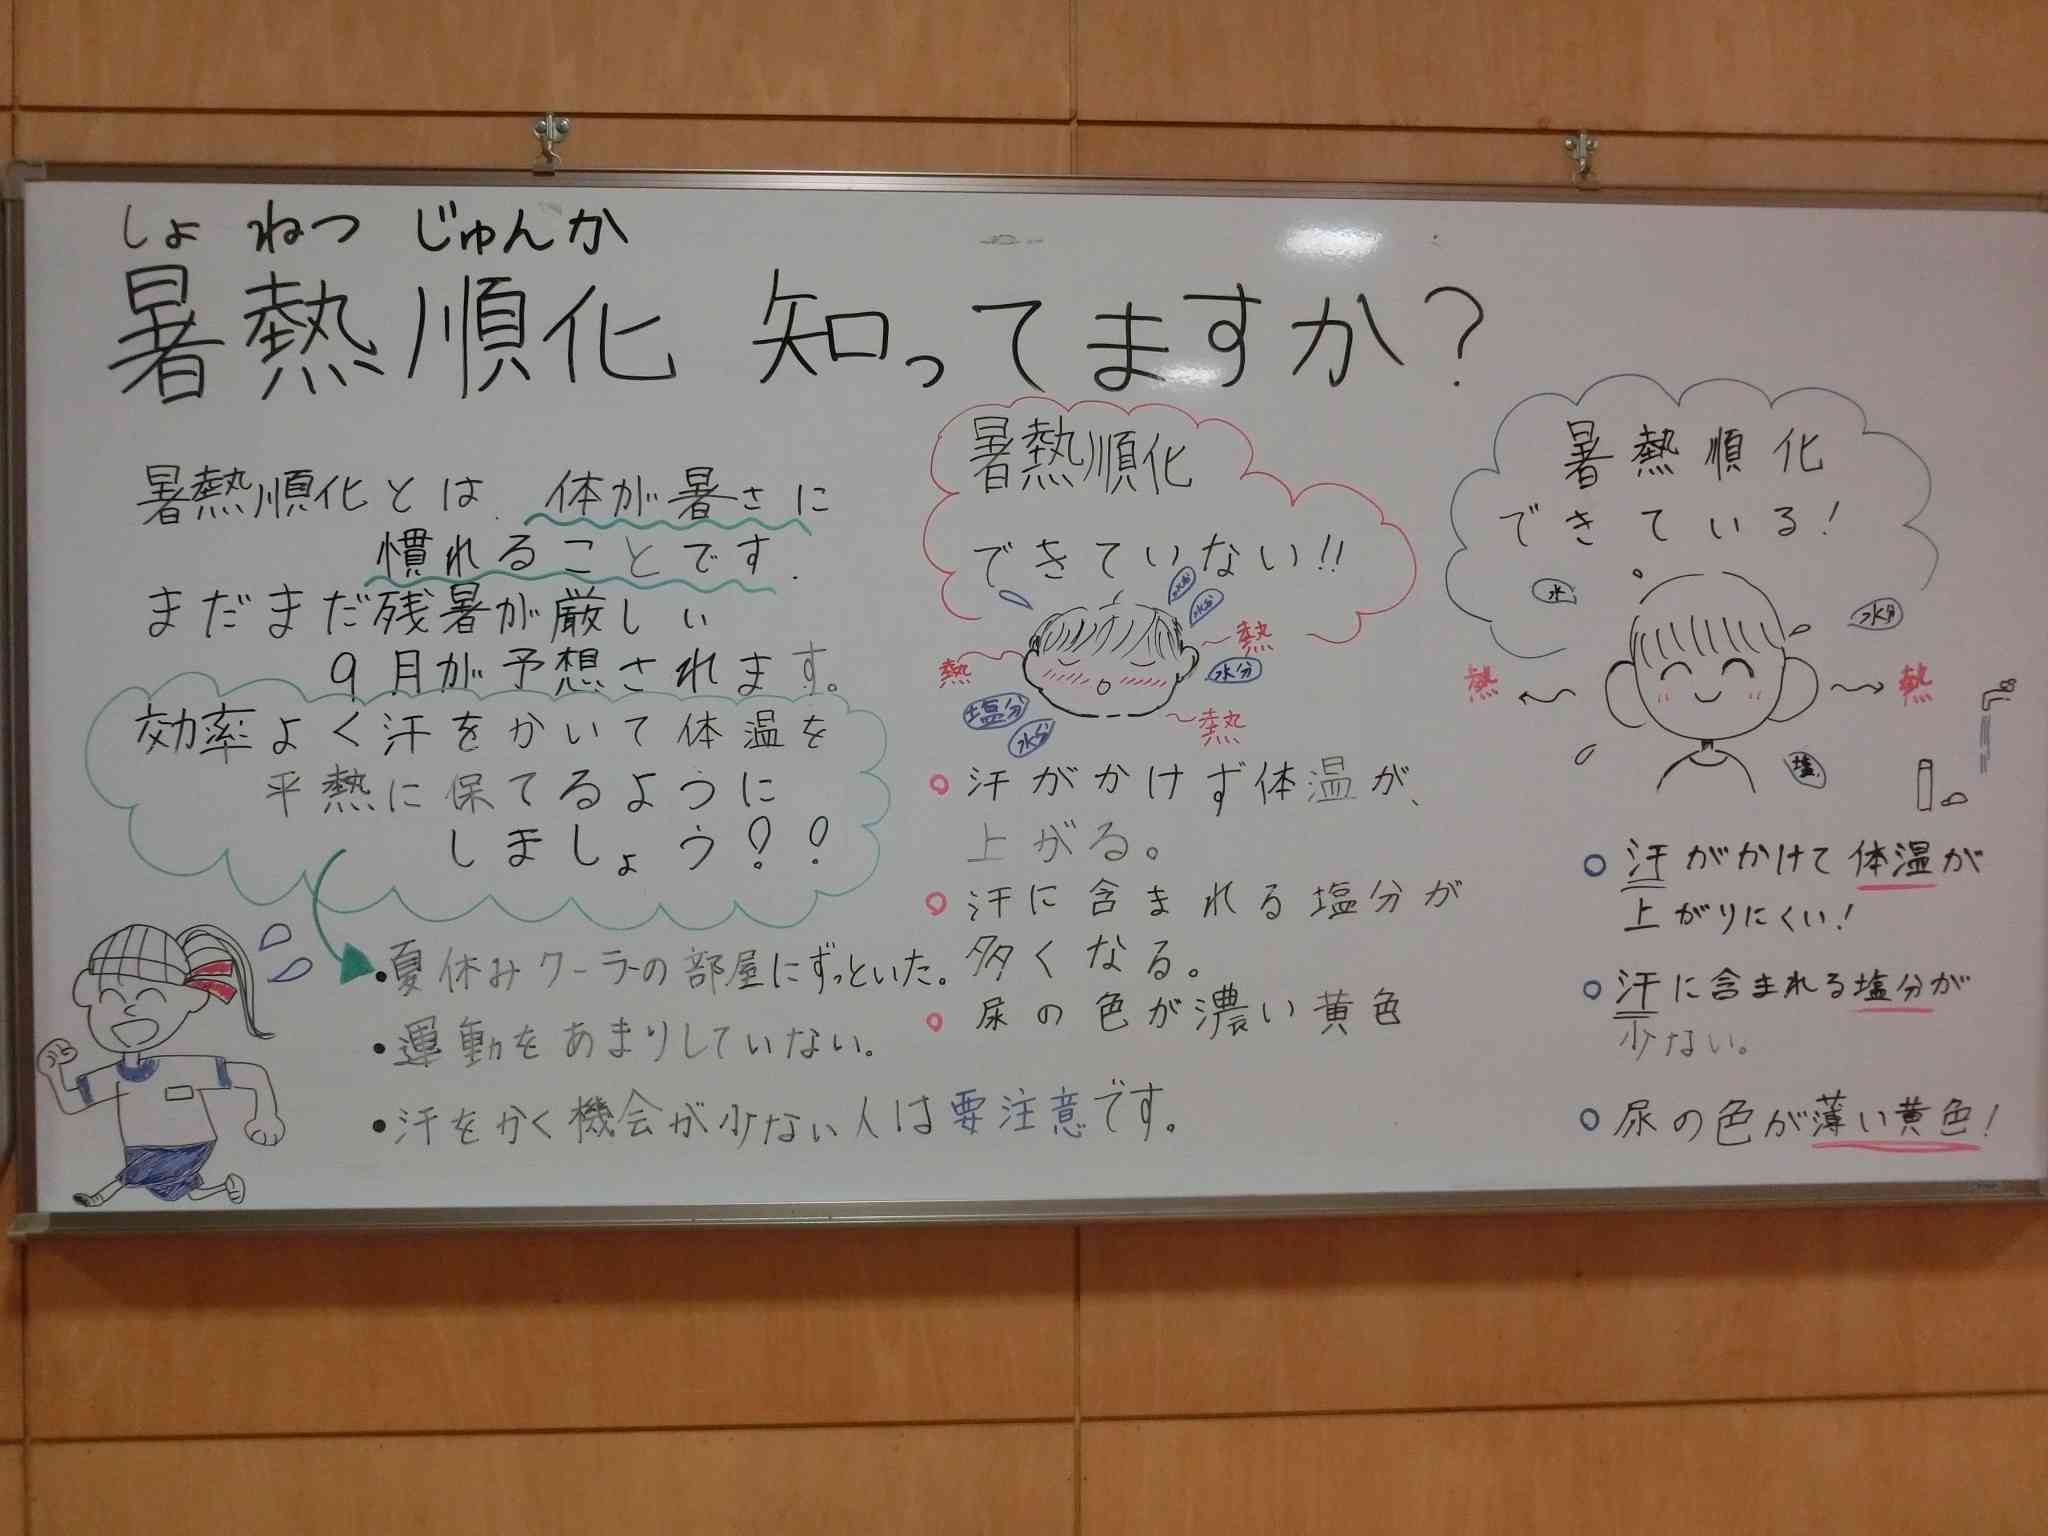 しょ ねつ じゅんか
暑熱順化 知ってますか?
暑熱順化とは、体が暑さに
慣れることです.
まだまだ残暑が厳しい
9月が予想されます。
効率よく汗をかいて体温を
平熱に保てるように
しましょう!!
・夏休みクーラーの部屋にずっといた。
・運動をあまりしていない。
・汗をかく機会が少ない人は要注意です。
暑熱順化
できていない!!
水分
水分
熱
熱
水分
塩分
水分
熱
○汗がかけず体温が、
上がる。
○汗に含まれる塩分が
多くなる。
○尿の色が濃い黄色
暑熱順化
できている!
水
水分
熱
熱
塩
○汗がかけて体温が
上がりにくい!
○汗に含まれる塩分が
少ない。
○尿の色が薄い黄色!